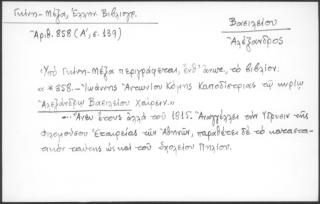 Γκίνη-Μέξα, Ἑλλην. Βιβλιογρ.
Ἀριθ. 858 (Α', σ. 139)
Βασιλείου
Ἀλέξανδρος
Ὑπὸ Γκίνη-Μέξα περιγράφεται, ἐνθ' ἄνωτ., τὸ βιβλίον:
«*858.- Ἰωάννης Ἀντωνίου Κόμης Καποδίστριας τῷ κυρίῳ
Ἀλεξάνδρῳ Βασιλείου Χαίρειν.»
Ἄνευ ἔτους ἀλλὰ τοῦ 1815. Ἀναγγέλλει τὴν ἵδρυσιν τῆς
Φιλομούσου Ἑταιρείας τῶν Ἀθηνῶν, παραθέτει δὲ τὸ καταστα-
τικὸν ταύτης ὡς καὶ τοῦ σχολείου Πηλίου.